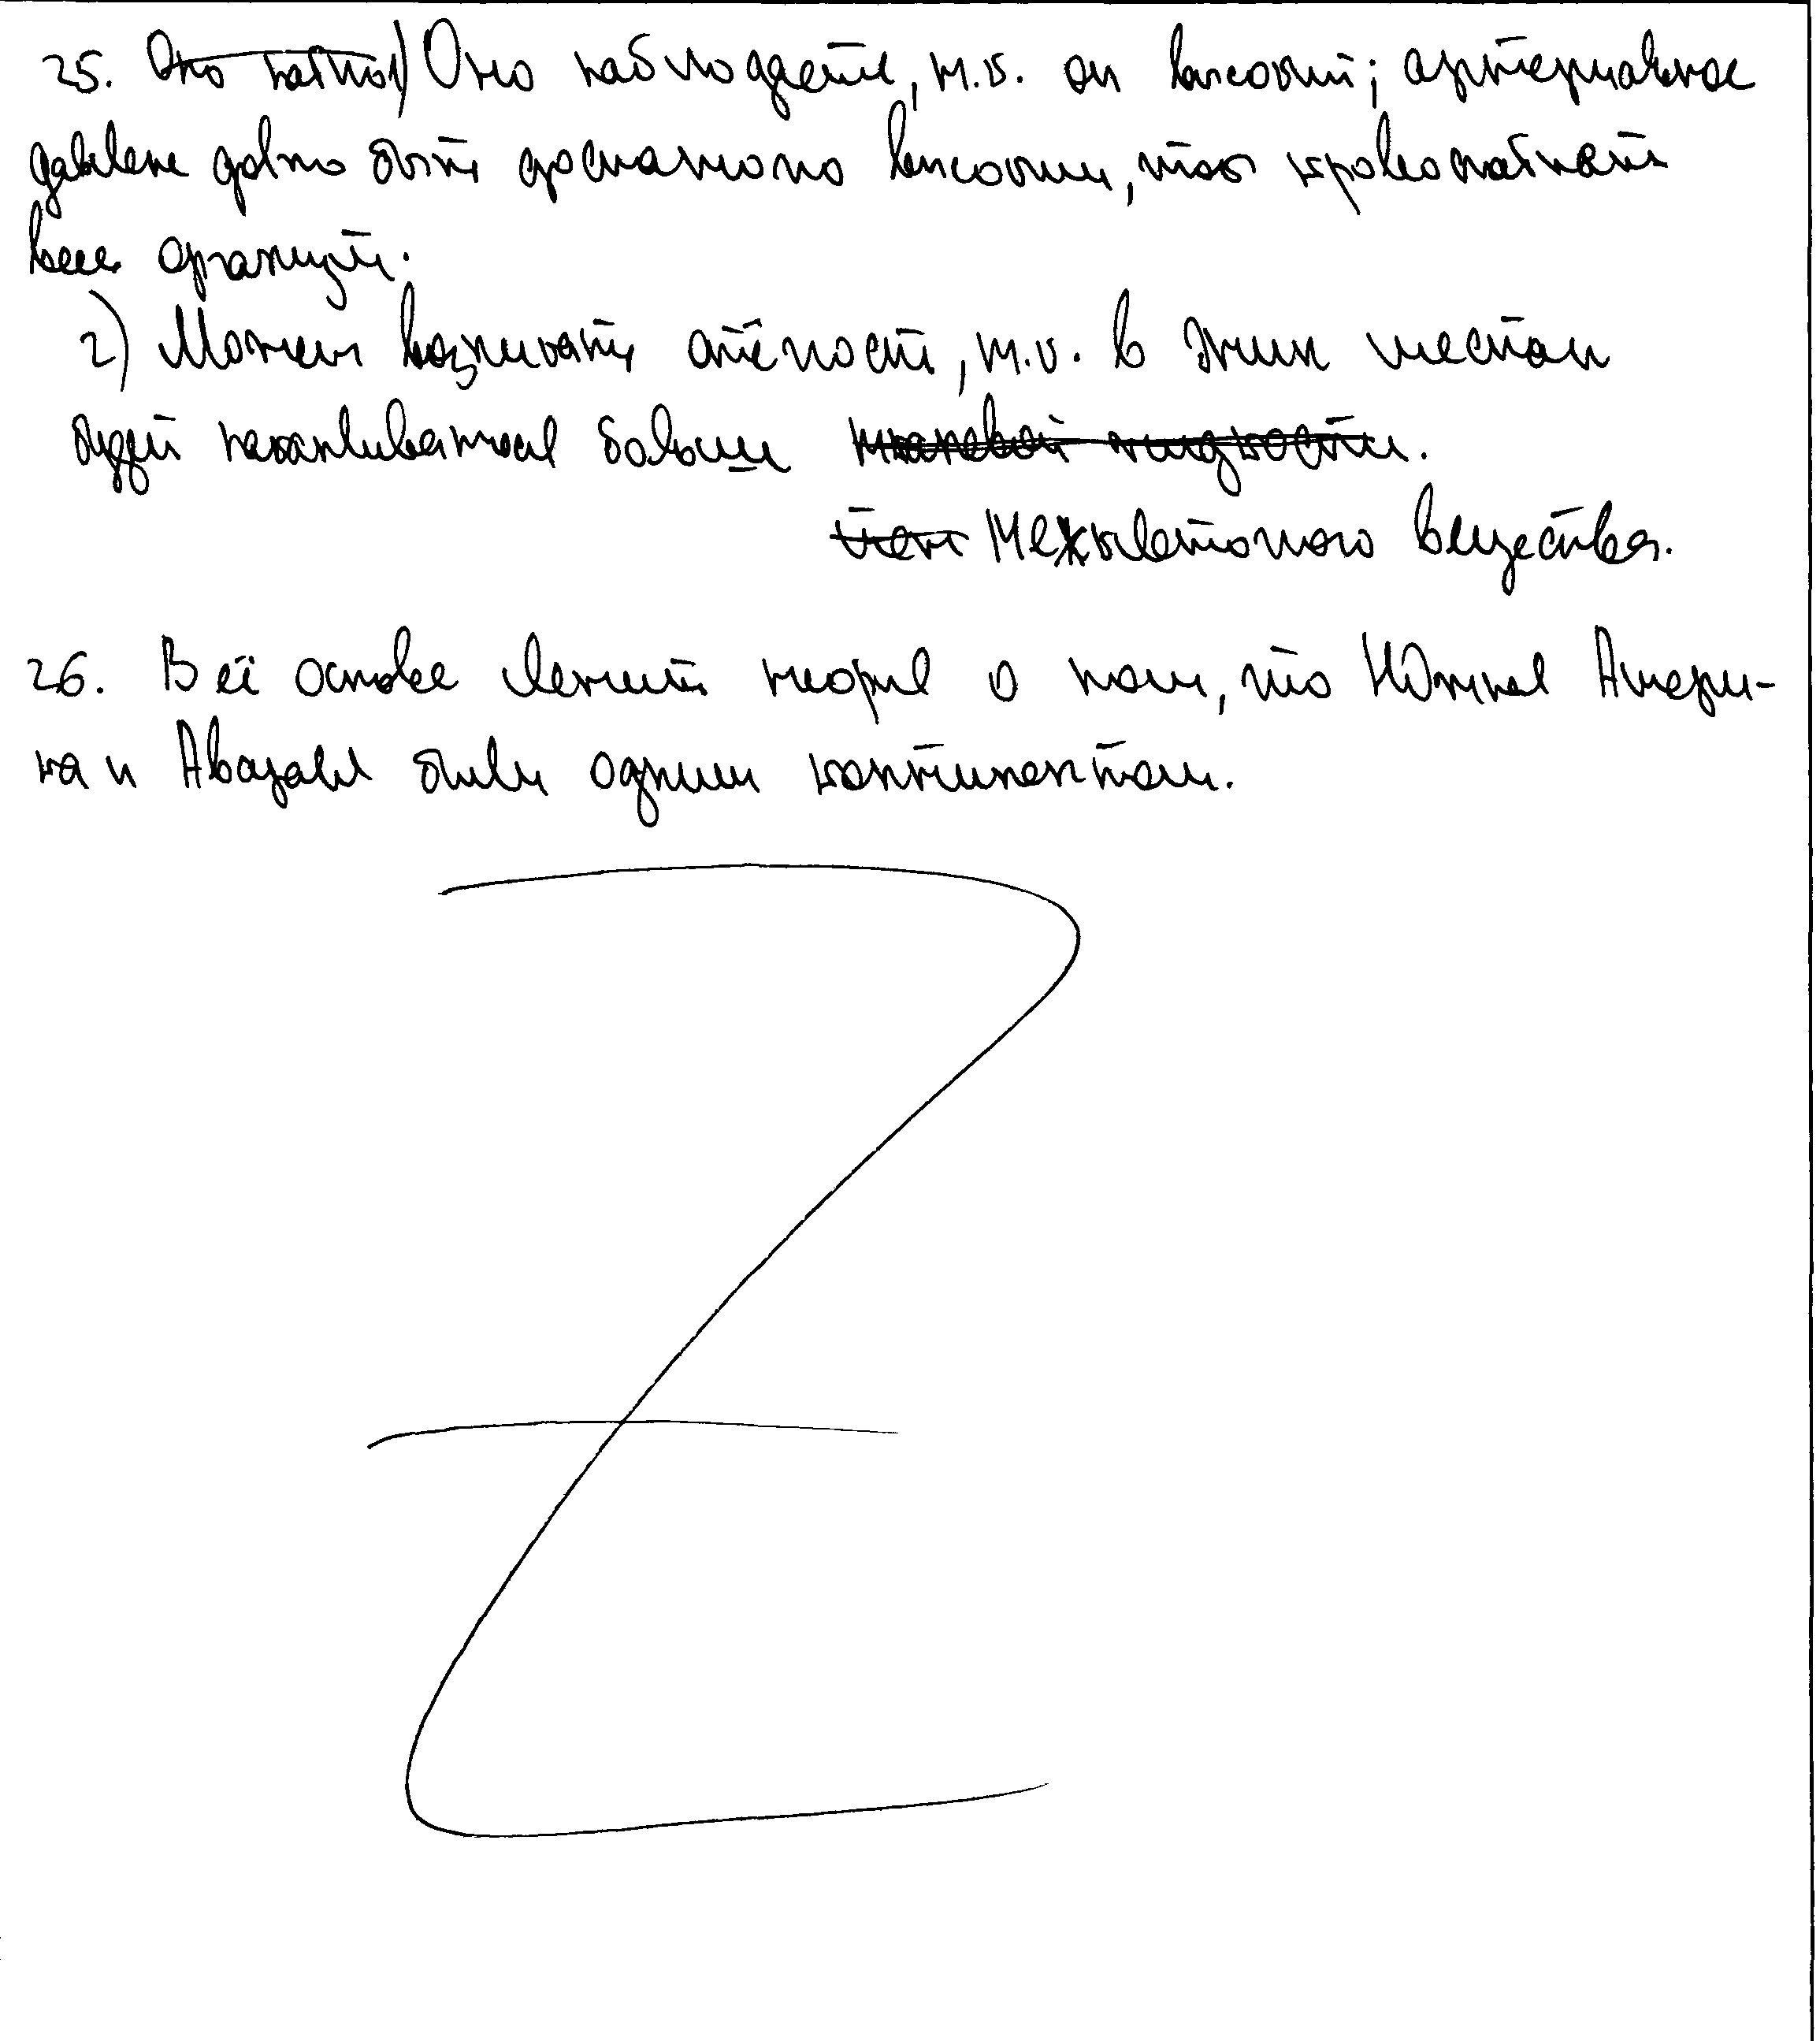 25. Оно наблю 1) Оно наблюдается, т.к. он высокий; артериальное
давление должно быть достаточно высоким, чтоб кровоснабжать
весь организм.
2) Может возникать отёчность, т.к. в этих местах
будет накапливаться больше тканевой жидкости.
Межклеточного вещества.
26. В её основе лежит теория о том, что Южная Амери-
ка и Австралия были одним континентом.